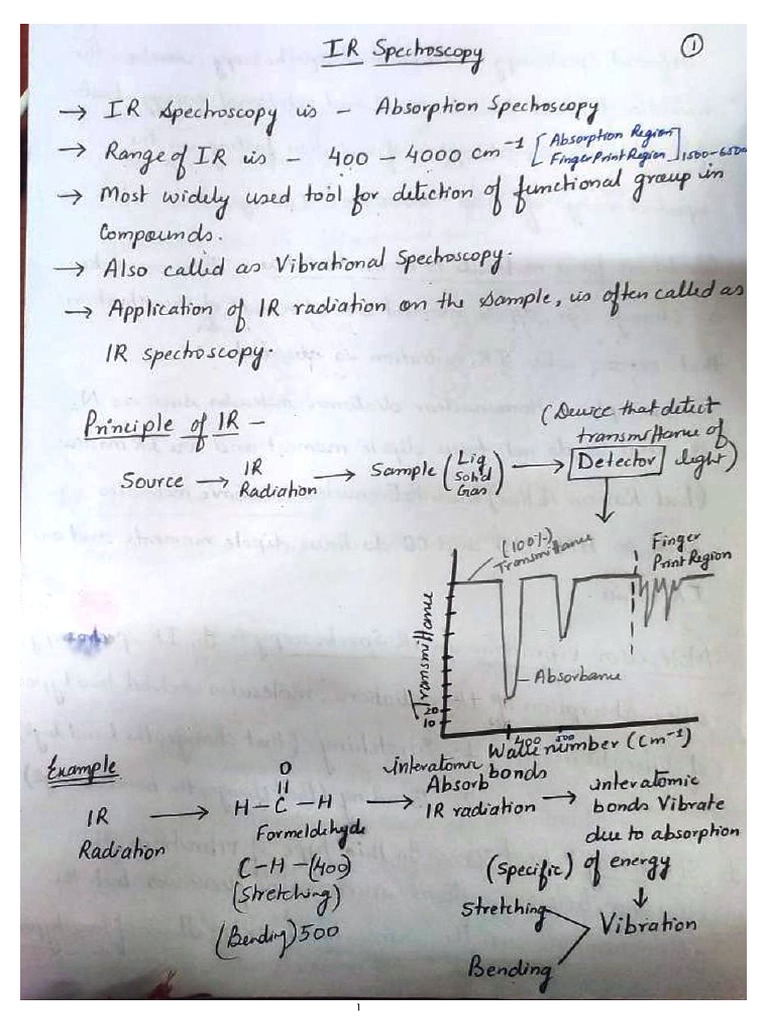 IR Spectroscopy
1
→ IR Spectroscopy is - Absorption Spectroscopy
→ Range of IR is - 400 - 4000 cm⁻¹ [Absorption Region
Finger Print Region] 1500-6500
→ Most widely used tool for detection of functional group in
Compounds.
→ Also called as Vibrational Spectroscopy.
→ Application of IR radiation on the sample, is often called as
IR spectroscopy.
Principle of IR -
(Device that detect
transmittance of
light)
Source → IR Radiation → Sample (Liq Solid Gas) → Detector
(100%)
Transmittance
Finger
Print Region
Transmittance
Absorbance
20
10
400 500
Wavenumber (Cm⁻¹)
Example
IR
Radiation
→
O
H-C-H
Formeldehyde
C-H-(400)
(Stretching)
(Bending) 500
→
interatomic bonds
Absorb
IR radiation
→
interatomic
bonds Vibrate
due to absorption
(Specific) of energy
↓
Vibration
Stretching
Bending
1